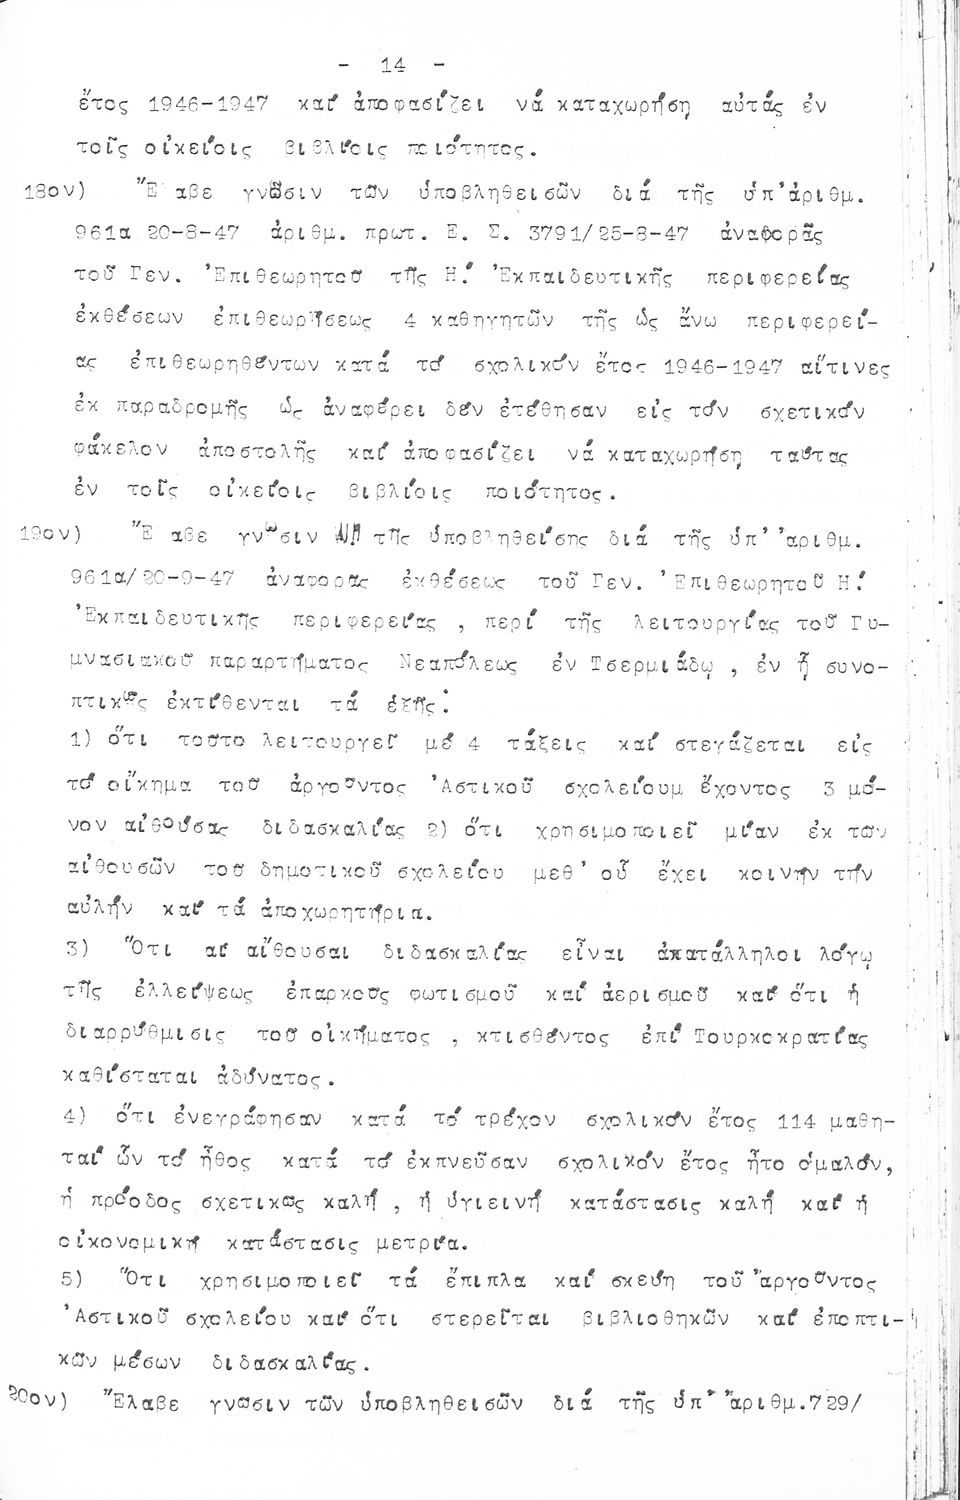 - 14 -
ἔτος 1946-1947 καί ἀποφασίζει νά καταχωρήσῃ αὐτάς ἐν
τοῖς οἰκείοις βιβλίοις ποιότητος.
18ον) Ἔ αβε γνῶσιν τῶν ὑποβληθεισῶν διά τῆς ὑπ'ἀριθμ.
961α 20-8-47 ἀριθμ. πρωτ. Ε. Σ. 3791/25-8-47 ἀναφορᾶς
τοῦ Γεν. Ἐπιθεωρητοῦ τῆς Η! Ἐκπαιδευτικῆς περιφερείας
ἐκθέσεων ἐπιθεωρήσεως 4 καθηγητῶν τῆς ὡς ἄνω περιφερεί-
ας ἐπιθεωρηθέντων κατά τό σχολικόν ἔτος 1946-1947 αἵτινες
ἐκ παραδρομῆς ὡς ἀναφέρει δέν ἐτέθησαν εἰς τόν σχετικόν
φάκελον ἀποστολῆς καί ἀποφασίζει νά καταχωρήσῃ ταύτας
ἐν τοῖς οἰκείοις βιβλίοις ποιότητος.
19ον) Ἔ αβε γνῶσιν τῆς ὑποβληθείσης διά τῆς ὑπ' ἀριθμ.
961α/20-9-47 ἀναφορᾶς ἐκθέσεως τοῦ Γεν. Ἐπιθεωρητοῦ Η!
Ἐκπαιδευτικῆς περιφερείας , περί τῆς λειτουργίας τοῦ Γυ-
μνασιακοῦ παραρτήματος Νεαπόλεως ἐν Τσερμιάδῳ , ἐν ᾗ συνο-
πτικῶς ἐκτίθενται τά ἑξῆς:
1) ὅτι τοῦτο λειτουργεῖ μέ 4 τάξεις καί στεγάζεται εἰς
τό οἴκημα τοῦ ἀργοῦντος Ἀστικοῦ σχολείουμ ἔχοντος 3 μό-
νον αἰθούσας διδασκαλίας 2) ὅτι χρησιμοποιεῖ μίαν ἐκ τῶν
αἰθουσῶν τοῦ δημοτικοῦ σχολείου μεθ' οὗ ἔχει κοινήν τήν
αὐλήν καί τά ἀποχωρητήρια.
3) Ὅτι αἱ αἴθουσαι διδασκαλίας εἶναι ἀκατάλληλοι λόγῳ
τῆς ἐλλείψεως ἐπαρκοῦς φωτισμοῦ καί ἀερισμοῦ καί ὅτι ἡ
διαρρύθμισις τοῦ οἰκήματος , κτισθέντος ἐπί Τουρκοκρατίας
καθίσταται ἀδύνατος.
4) ὅτι ἐνεγράφησαν κατά τό τρέχον σχολικόν ἔτος 114 μαθη-
ταί ὧν τό ἦθος κατά τό ἐκπνεῦσαν σχολικόν ἔτος ἦτο ὁμαλόν,
ἡ πρόοδος σχετικῶς καλή , ἡ ὑγιεινή κατάστασις καλή καί ἡ
οἰκονομική κατάστασις μετρία.
5) Ὅτι χρησιμοποιεῖ τά ἔπιπλα καί σκεύη τοῦ ἀργοῦντος
Ἀστικοῦ σχολείου καί ὅτι στερεῖται βιβλιοθηκῶν καί ἐποπτι-
κῶν μέσων διδασκαλίας.
20ον) Ἔλαβε γνῶσιν τῶν ὑποβληθεισῶν διά τῆς ὑπ' ἀριθμ.729/